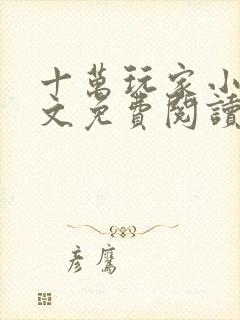 十萬玩家小
文免費閱讀
彥鷹